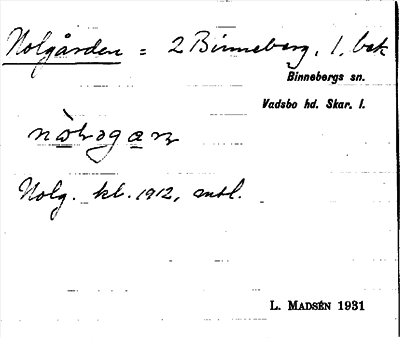 Nolgården = 2 Binneberg, 1, bek
Binnebergs sn.
Vadsbo hd. Skar. l.
Nolg. kl. 1912, antl.
L. MADSÉN 1931